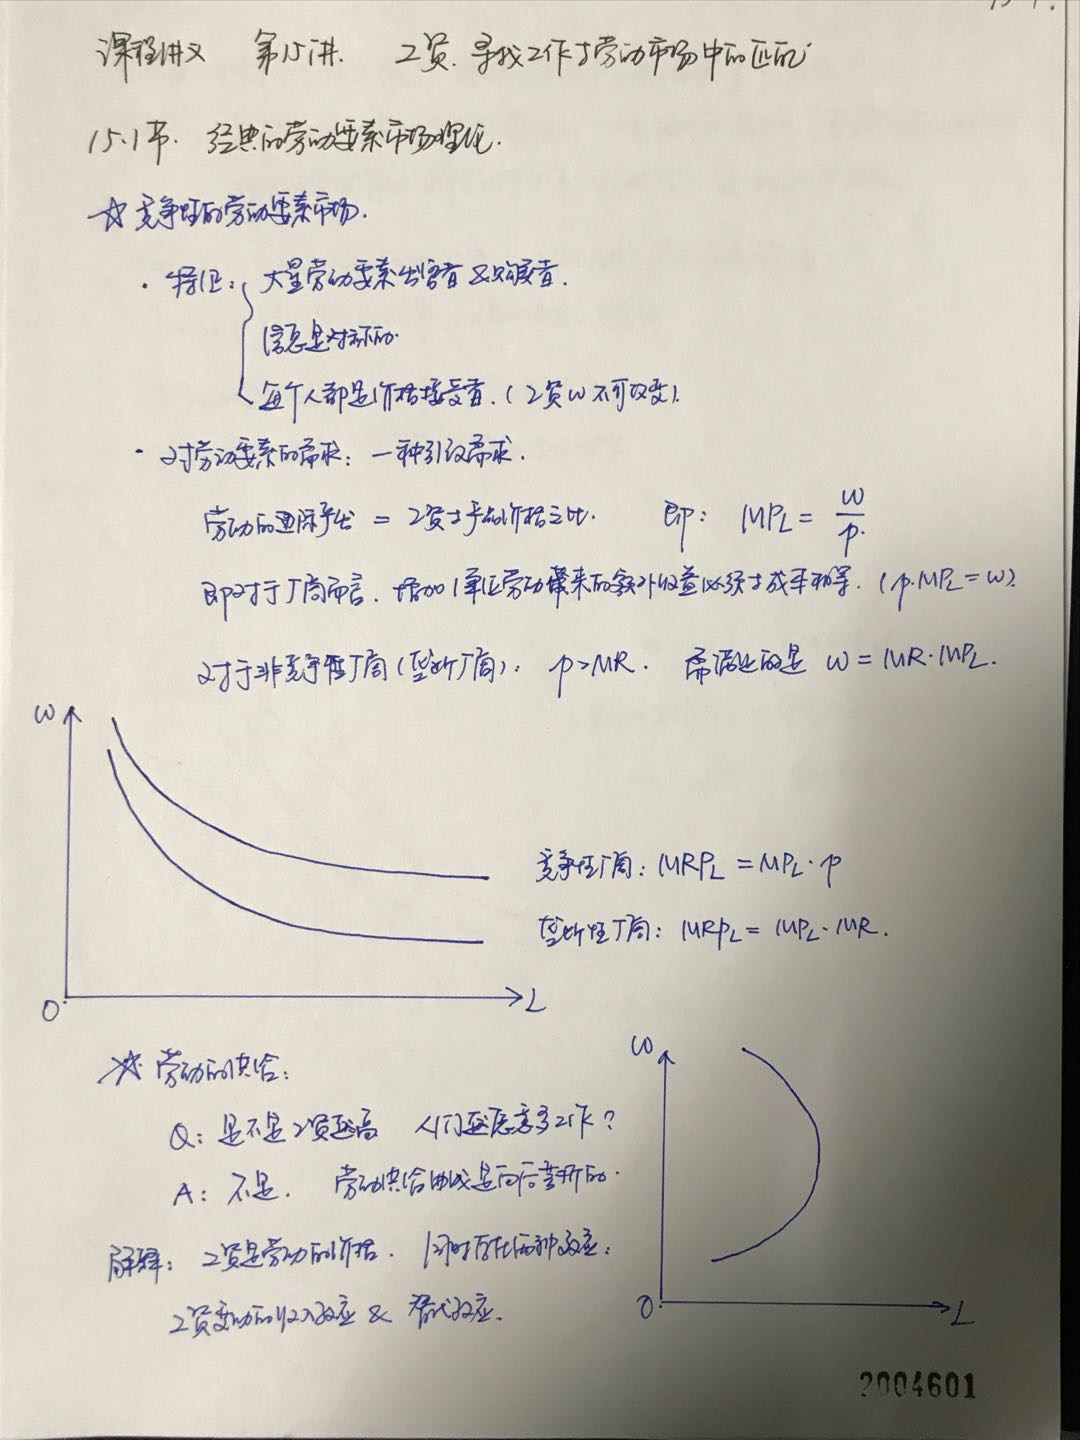 15-1.
课程讲义 第15讲. 工资、寻找工作与劳动市场中的匹配
15.1节. 经典的劳动要素市场理论.
☆ 竞争性的劳动要素市场.
· 特征: 大量劳动要素出售者&购买者.
信息是对称的.
每个人都是价格接受者.(工资w不可改变).
· 对劳动要素的需求: 一种引致需求.
劳动的边际产出 = 工资与产品价格之比. 即: MPL = w/p.
即对于厂商而言, 增加1单位劳动带来的额外收益必须与成本相等. (p·MPL = w).
对于非竞争性厂商(垄断厂商): p>MR. 需满足的是 w = MR·MPL.
w
竞争性厂商: MRPL = MPL·p
垄断性厂商: MRPL = MPL·MR.
O L
☆ 劳动的供给:
w
Q: 是不是工资越高 人们越愿意多工作?
A: 不是. 劳动供给曲线是向后弯折的.
解释: 工资是劳动的价格. 同时存在两种效应:
工资变动的收入效应 & 替代效应.
O L
2004601